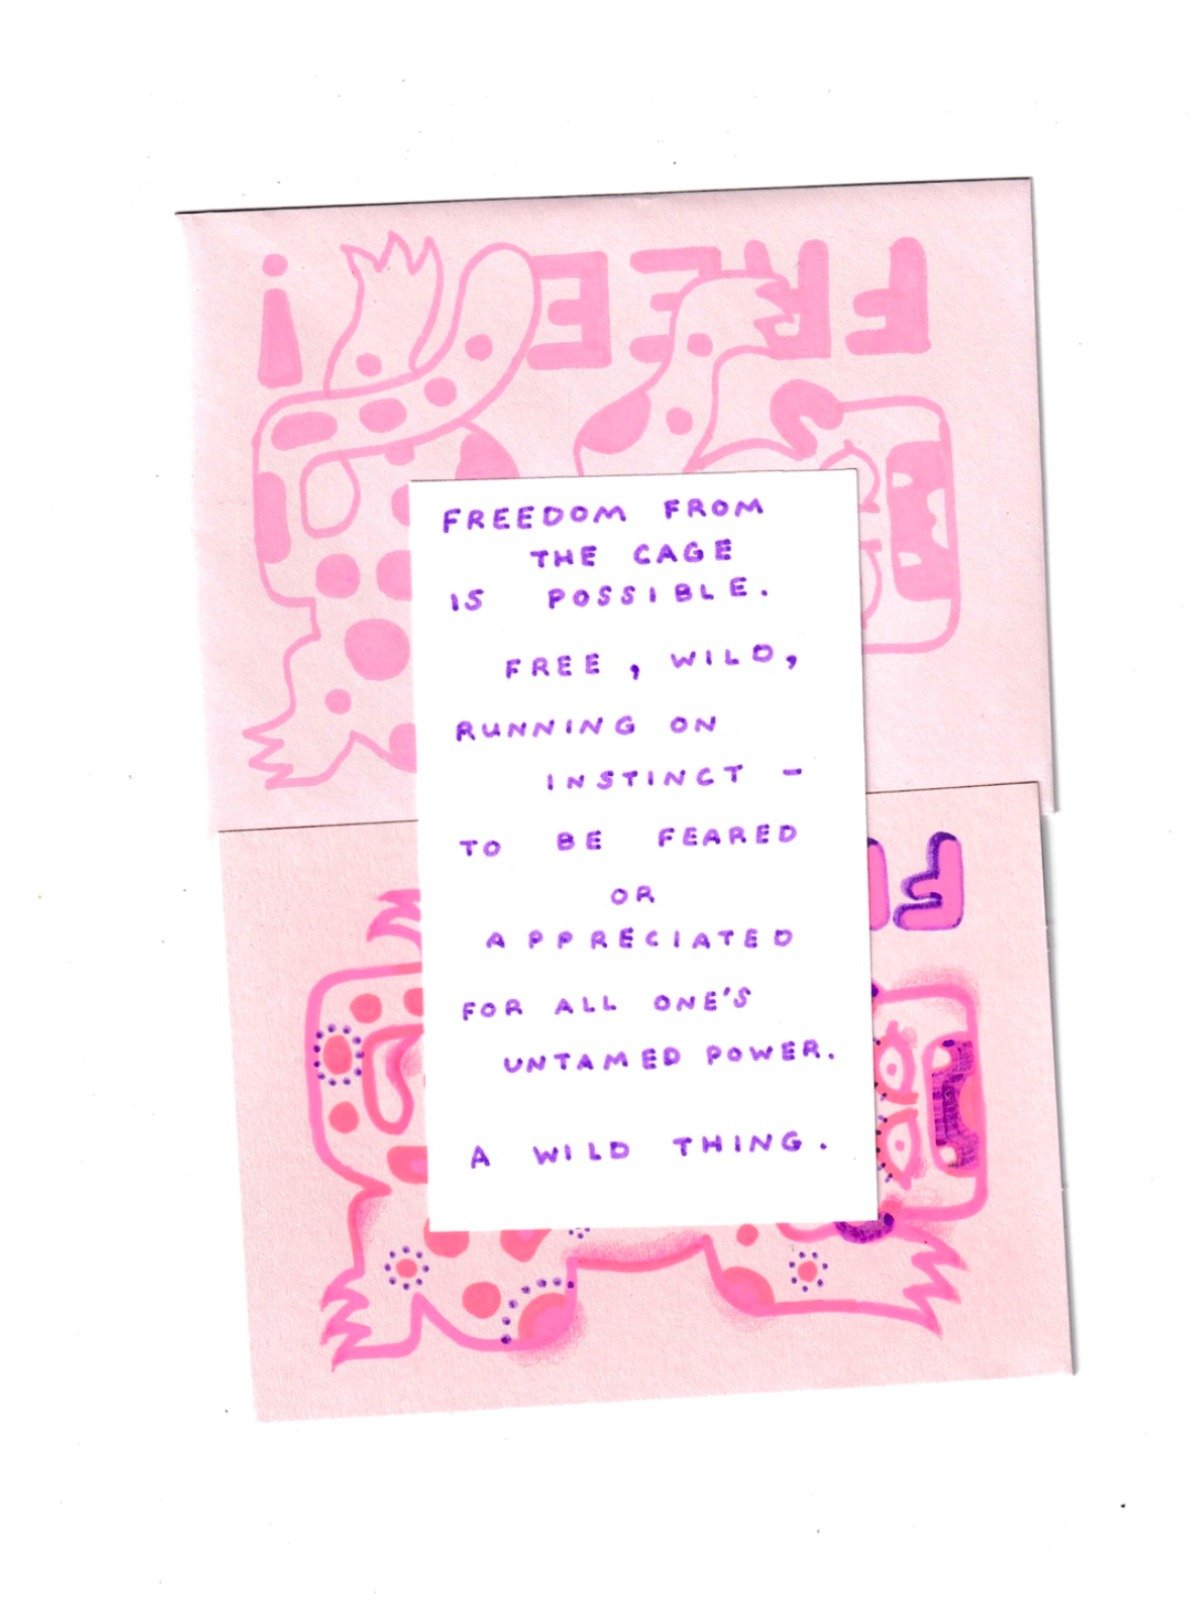 FREE!
FREEDOM FROM
THE CAGE
IS POSSIBLE.
FREE, WILD,
RUNNING ON
INSTINCT -
TO BE FEARED
OR
APPRECIATED
FOR ALL ONE'S
UNTAMED POWER.
A WILD THING.